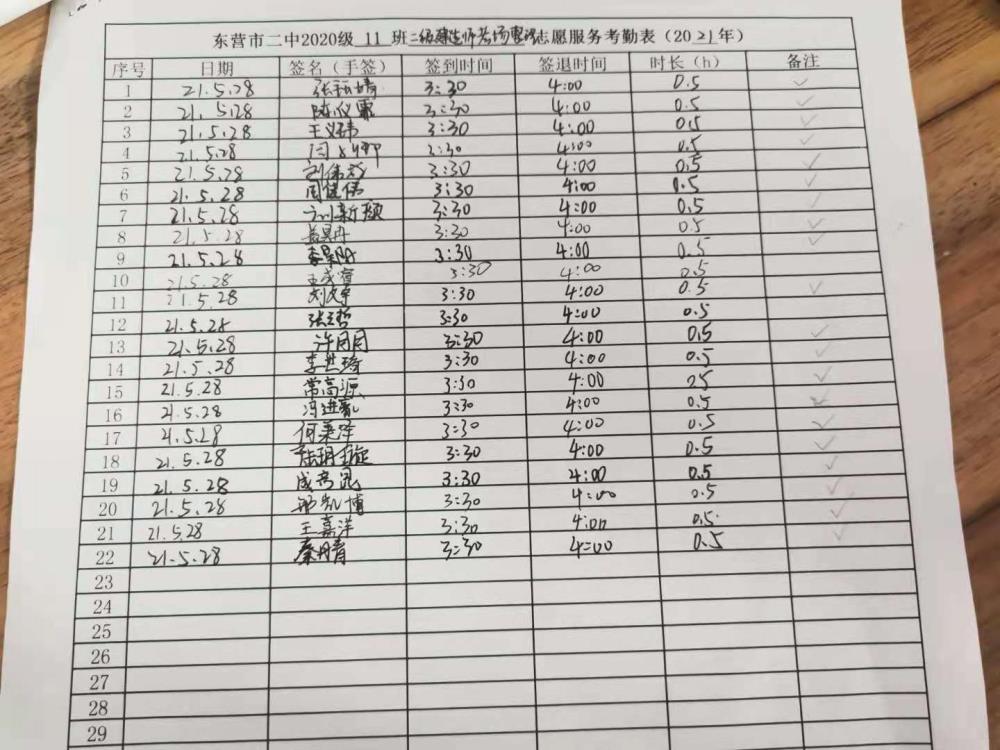 东营市二中2020级 11 班二级建造师考场志愿服务考勤表（2021年）
序号 日期 签名（手签） 签到时间 签退时间 时长（h） 备注
1 21.5.28 3:30 4:00 0.5 ✓
2 21.5.28 3:30 4:00 0.5 ✓
3 21.5.28 王义伟 3:30 4:00 0.5 ✓
4 21.5.28 3:30 4:00 0.5 ✓
5 21.5.28 3:30 4:00 0.5 ✓
6 21.5.28 周健伟 3:30 4:00 0.5 ✓
7 21.5.28 刘新颖 3:30 4:00 0.5 ✓
8 21.5.28 3:30 4:00 0.5 ✓
9 21.5.28 3:30 4:00 0.5
10 21.5.28 3:30 4:00 0.5
11 21.5.28 3:30 4:00 0.5 ✓
12 21.5.28 张立哲 3:30 4:00 0.5
13 21.5.28 许月月 3:30 4:00 0.5 ✓
14 21.5.28 李世琦 3:30 4:00 0.5 ✓
15 21.5.28 常高源 3:30 4:00 0.5 ✓
16 21.5.28 冯进 3:30 4:00 0.5 ✓
17 21.5.28 何秉泽 3:30 4:00 0.5 ✓
18 21.5.28 3:30 4:00 0.5 ✓
19 21.5.28 3:30 4:00 0.5 ✓
20 21.5.28 凯博 3:30 4:00 0.5 ✓
21 21.5.28 王嘉洋 3:30 4:00 0.5 ✓
22 21.5.28 秦丹青 3:30 4:00 0.5 ✓
23
24
25
26
27
28
29